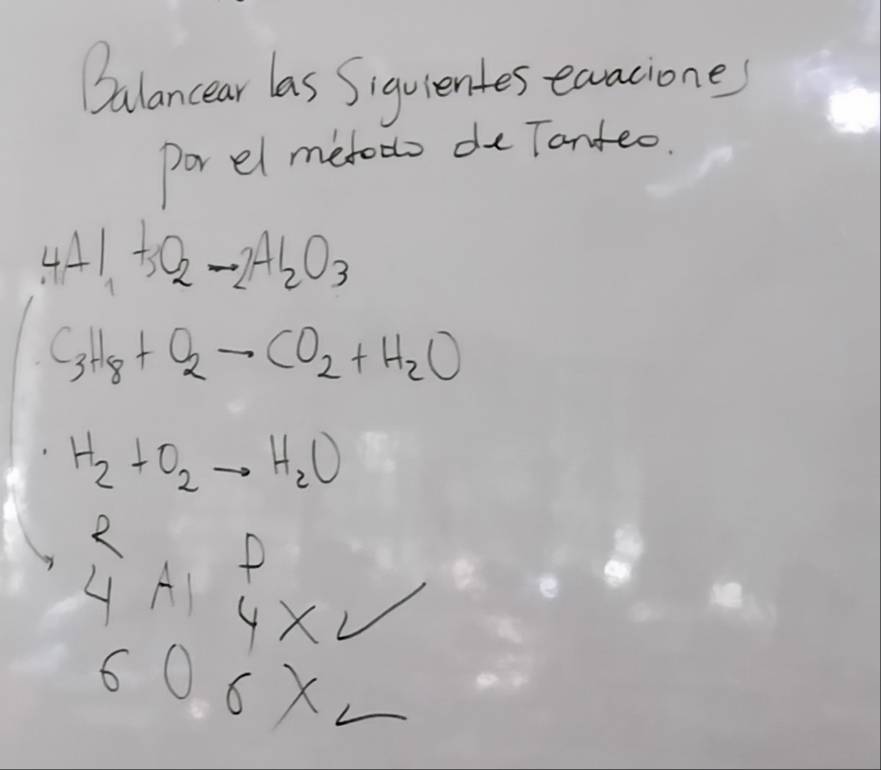 Balancear las Siguientes ecuaciones
por el método de Tanteo.
4Al₁ + 3O₂ → 2Al₂O₃
· C₃H₈ + O₂ → CO₂ + H₂O
· H₂ + O₂ → H₂O
R P
4 Al 4 X ✓
6 O 6 X ✓